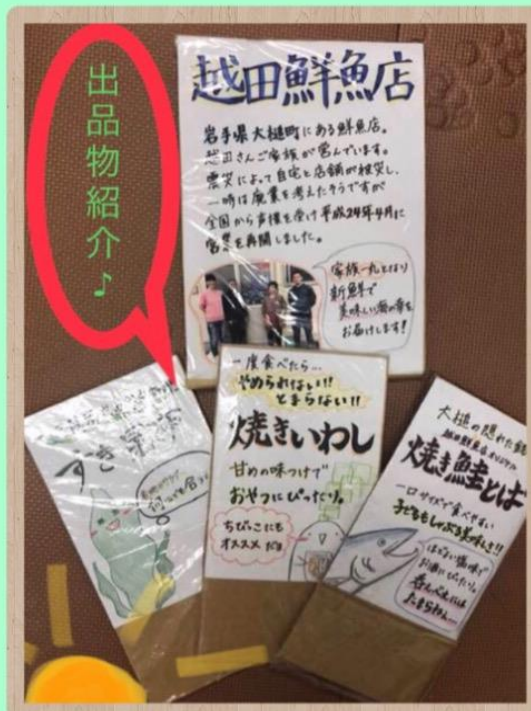 出品物紹介♪
越田鮮魚店
岩手県大槌町にある鮮魚店。
越田さんご家族が営んでいます。
震災によって自宅と店舗が被災し、
一時は廃業を考えたそうですが
全国から声援を受け平成24年4月に
営業を再開しました。
家族一丸となり
新鮮で
美味しい海の幸を
お届けします!
すき昆布
何にでも合う
一度食べたら…
やめられない!!
とまらない!!
焼きいわし
甘めの味つけで
おやつにぴったり。
ちびっこにも
オススメだヨ
大槌の隠れた
越田鮮魚店オリジナル
焼き鮭とば
一口サイズで食べやすい
子どももしゃぶる美味しさ!!
ほどよい塩味で
お酒にぴったり。
呑んべえには
たまらねぇ…